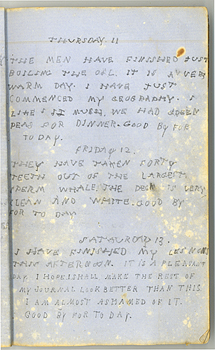 THURSDAY 11
THE MEN HAVE FINISHED JUST
BOILING THE OIL. IT IS A VERY
WARM DAY. I HAVE JUST
COMMENCED MY GEOGRAPHY. I
LIKE IT MUCH, WE HAD GREEN
PEAS FOR DINNER. GOOD BY FOR
TO DAY.
FRIDAY 12.
THEY HAVE TAKEN FORTY
TEETH OUT OF THE LARGEST
SPERM WHALE, THE DECK IS VERY
CLEAN AND WHITE. GOOD BY
FOR TO DAY
SATAURDAY 13.
I HAVE FINISHED MY LESSONS
THIS AFTERNOON. IT IS A PLEASANT
DAY. I HOPE I SHALL MAKE THE REST OF
MY JOURNAL LOOK BETTER THAN THIS
I AM ALMOST ASHAMED OF IT.
GOOD BY FOR TO DAY.